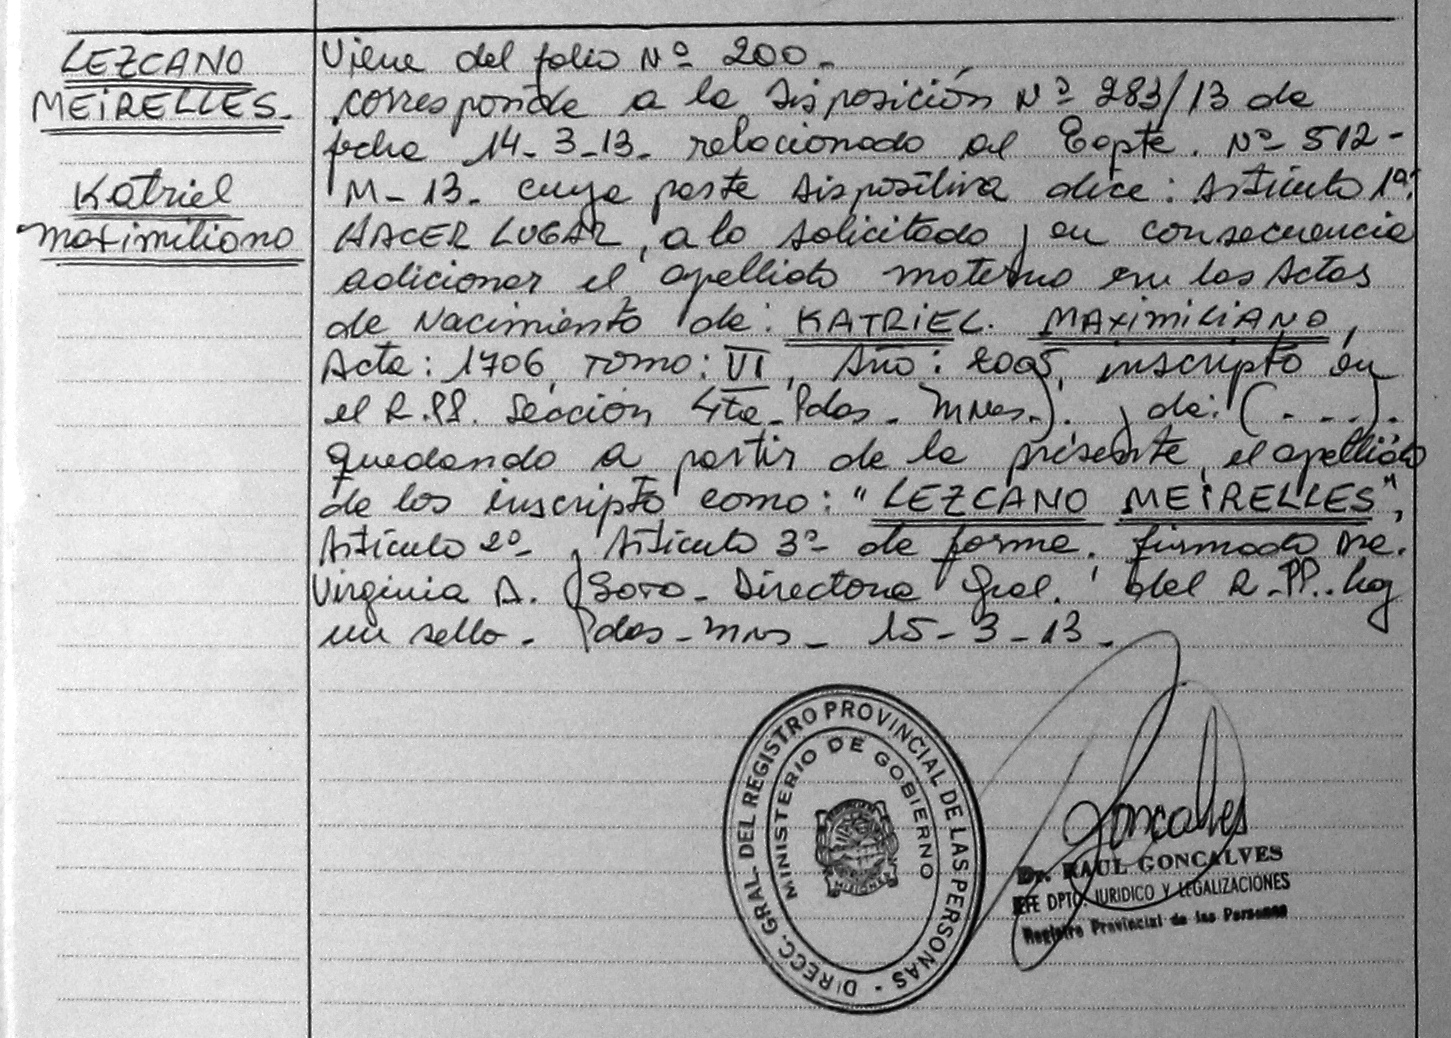 LEZCANO
MEIRELLES.
Katriel
Maximiliano
Viene del folio Nº 200.
corresponde a la Disposición Nº 283/13 de
fecha 14-3-13. relacionado al Expte. Nº 512-
M-13. cuya parte dispositiva dice: Artículo 1º:
HACER LUGAR, a lo solicitado y en consecuencia
adicionar el apellido materno en las Actas
de Nacimiento de: KATRIEL MAXIMILIANO,
Acta: 1706, Tomo: VI, Año: 2005, inscripto en
el R.PP. Sección 4ta. Pdas. Mnes.). y de: (. ...).
quedando a partir de la presente, el apellido
de los inscripto como: "LEZCANO MEIRELLES",
Artículo 2º y Artículo 3º de forma. firmado Dra.
Virginia A. Soto. Directora Gral. del R.PP. hay
un sello. Pdas-Mns- 15-3-13.
DIRECC. GRAL. DEL REGISTRO PROVINCIAL DE LAS PERSONAS -
MINISTERIO DE GOBIERNO
MISIONES
Goncalves
Dr. RAUL GONCALVES
JEFE DPTO. JURIDICO Y LEGALIZACIONES
Registro Provincial de las Personas